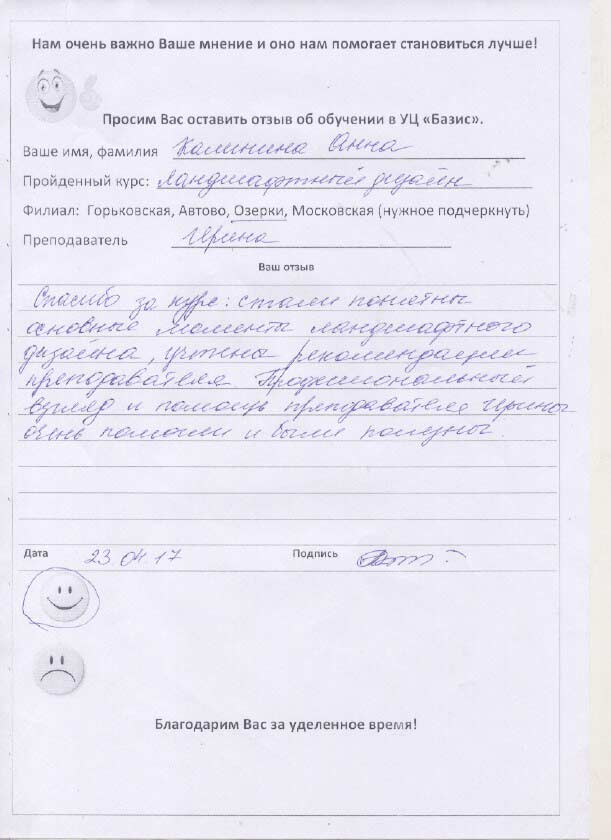 Нам очень важно Ваше мнение и оно нам помогает становиться лучше!
Просим Вас оставить отзыв об обучении в УЦ «Базис».
Ваше имя, фамилия Калинина Анна
Пройденный курс: Ландшафтный дизайн
Филиал: Горьковская, Автово, Озерки, Московская (нужное подчеркнуть)
Преподаватель Ирина
Ваш отзыв
Спасибо за курс: стали понятны
основные моменты ландшафтного
дизайна, учтены рекомендации
преподавателя Профессиональный
взгляд и помощь преподавателя Ирины
очень помогли и были полезны.
Дата 23.04.17 Подпись
Благодарим Вас за уделенное время!